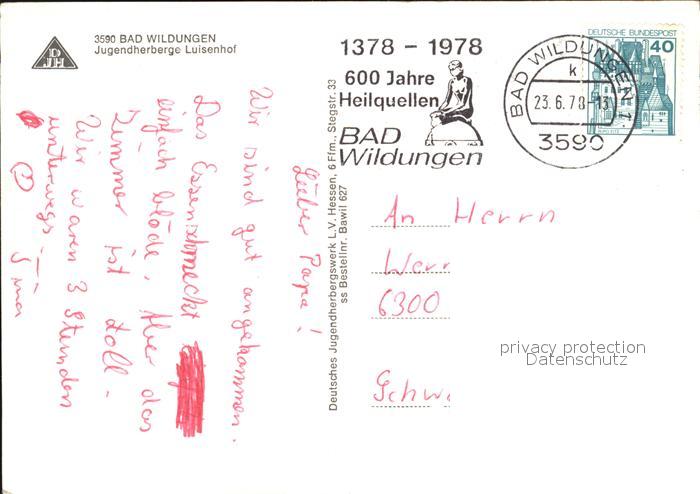 3590 BAD WILDUNGEN
Jugendherberge Luisenhof
DJH
1378 – 1978
600 Jahre
Heilquellen
BAD
Wildungen
BAD WILDUNGEN 1
k
23.6.78-13
3590
DEUTSCHE BUNDESPOST
40
Deutsches Jugendherbergswerk L.V. Hessen, 6 Ffm., Stegstr. 33
ss Bestellnr. Bawil 627
Lieber Papa!
Wir sind gut angekommen.
Das Essen schmeckt
einfach blöde. Aber das
Zimmer ist toll.
Wir waren 3 Stunden
unterwegs.
An Herrn
Werr
6300
Schw
privacy protection
Datenschutz